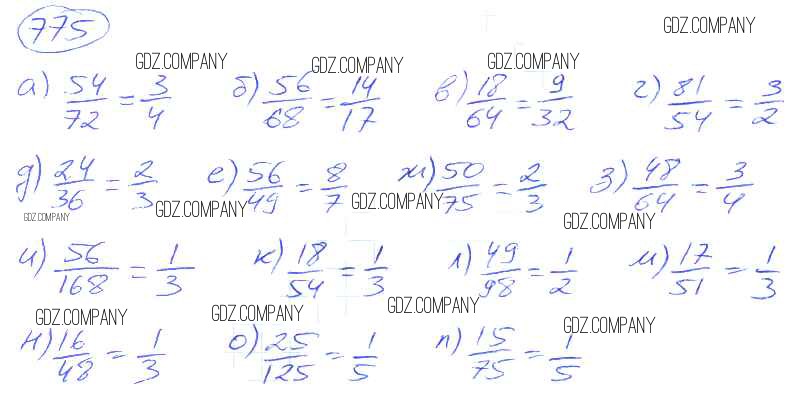 775
GDZ.COMPANY
GDZ.COMPANY GDZ.COMPANY
а) 54/72 = 3/4 б) 56/68 = 14/17 в) 18/64 = 9/32 г) 81/54 = 3/2
д) 24/36 = 2/3 е) 56/49 = 8/7 ж) 50/75 = 2/3 з) 48/64 = 3/4
GDZ.COMPANY GDZ.COMPANY GDZ.COMPANY GDZ.COMPANY
и) 56/168 = 1/3 к) 18/54 = 1/3 л) 49/98 = 1/2 м) 17/51 = 1/3
GDZ.COMPANY GDZ.COMPANY GDZ.COMPANY GDZ.COMPANY
н) 16/48 = 1/3 о) 25/125 = 1/5 п) 15/75 = 1/5